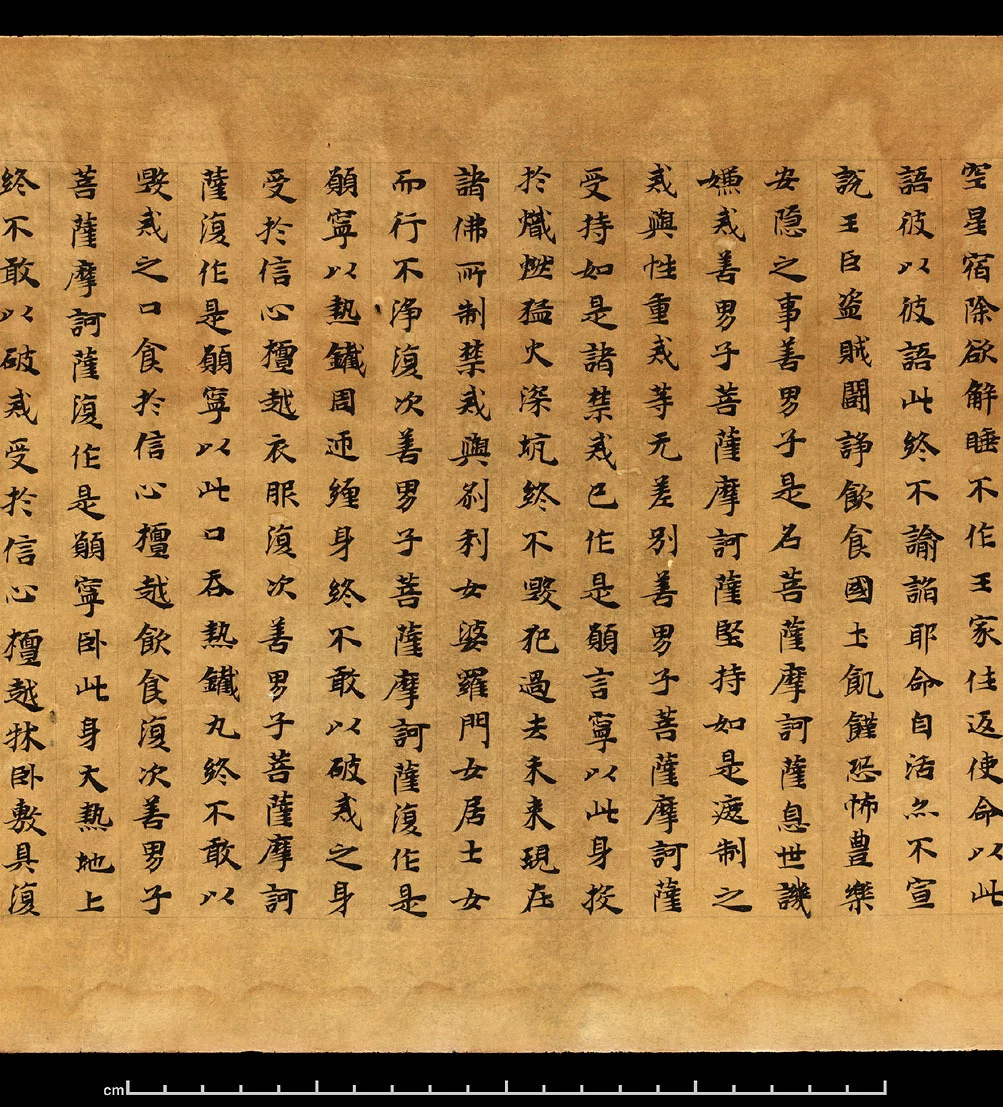 空星宿除欲解睡不作王家住返使命以此
語彼以彼語此終不諭諂耶命自活亦不宣
說王臣盜賊鬪諍飲食國土飢饉恐怖豊樂
安隱之事善男子是名菩薩摩訶薩息世譏
嫌戒善男子菩薩摩訶薩堅持如是遮制之
戒與性重戒等无差別善男子菩薩摩訶薩
受持如是諸禁戒已作是願言寧以此身投
於熾燃猛火深坑終不毀犯過去未来現在
諸佛所制禁戒與剎利女婆羅門女居士女
而行不淨復次善男子菩薩摩訶薩復作是
願寧以熱鐵周迊纏身終不敢以破戒之身
受於信心檀越衣服復次善男子菩薩摩訶
薩復作是願寧以此口吞熱鐵丸終不敢以
毀戒之口食於信心檀越飲食復次善男子
菩薩摩訶薩復作是願寧卧此身大熱地上
終不敢以破戒受於信心檀越牀卧敷具復
cm